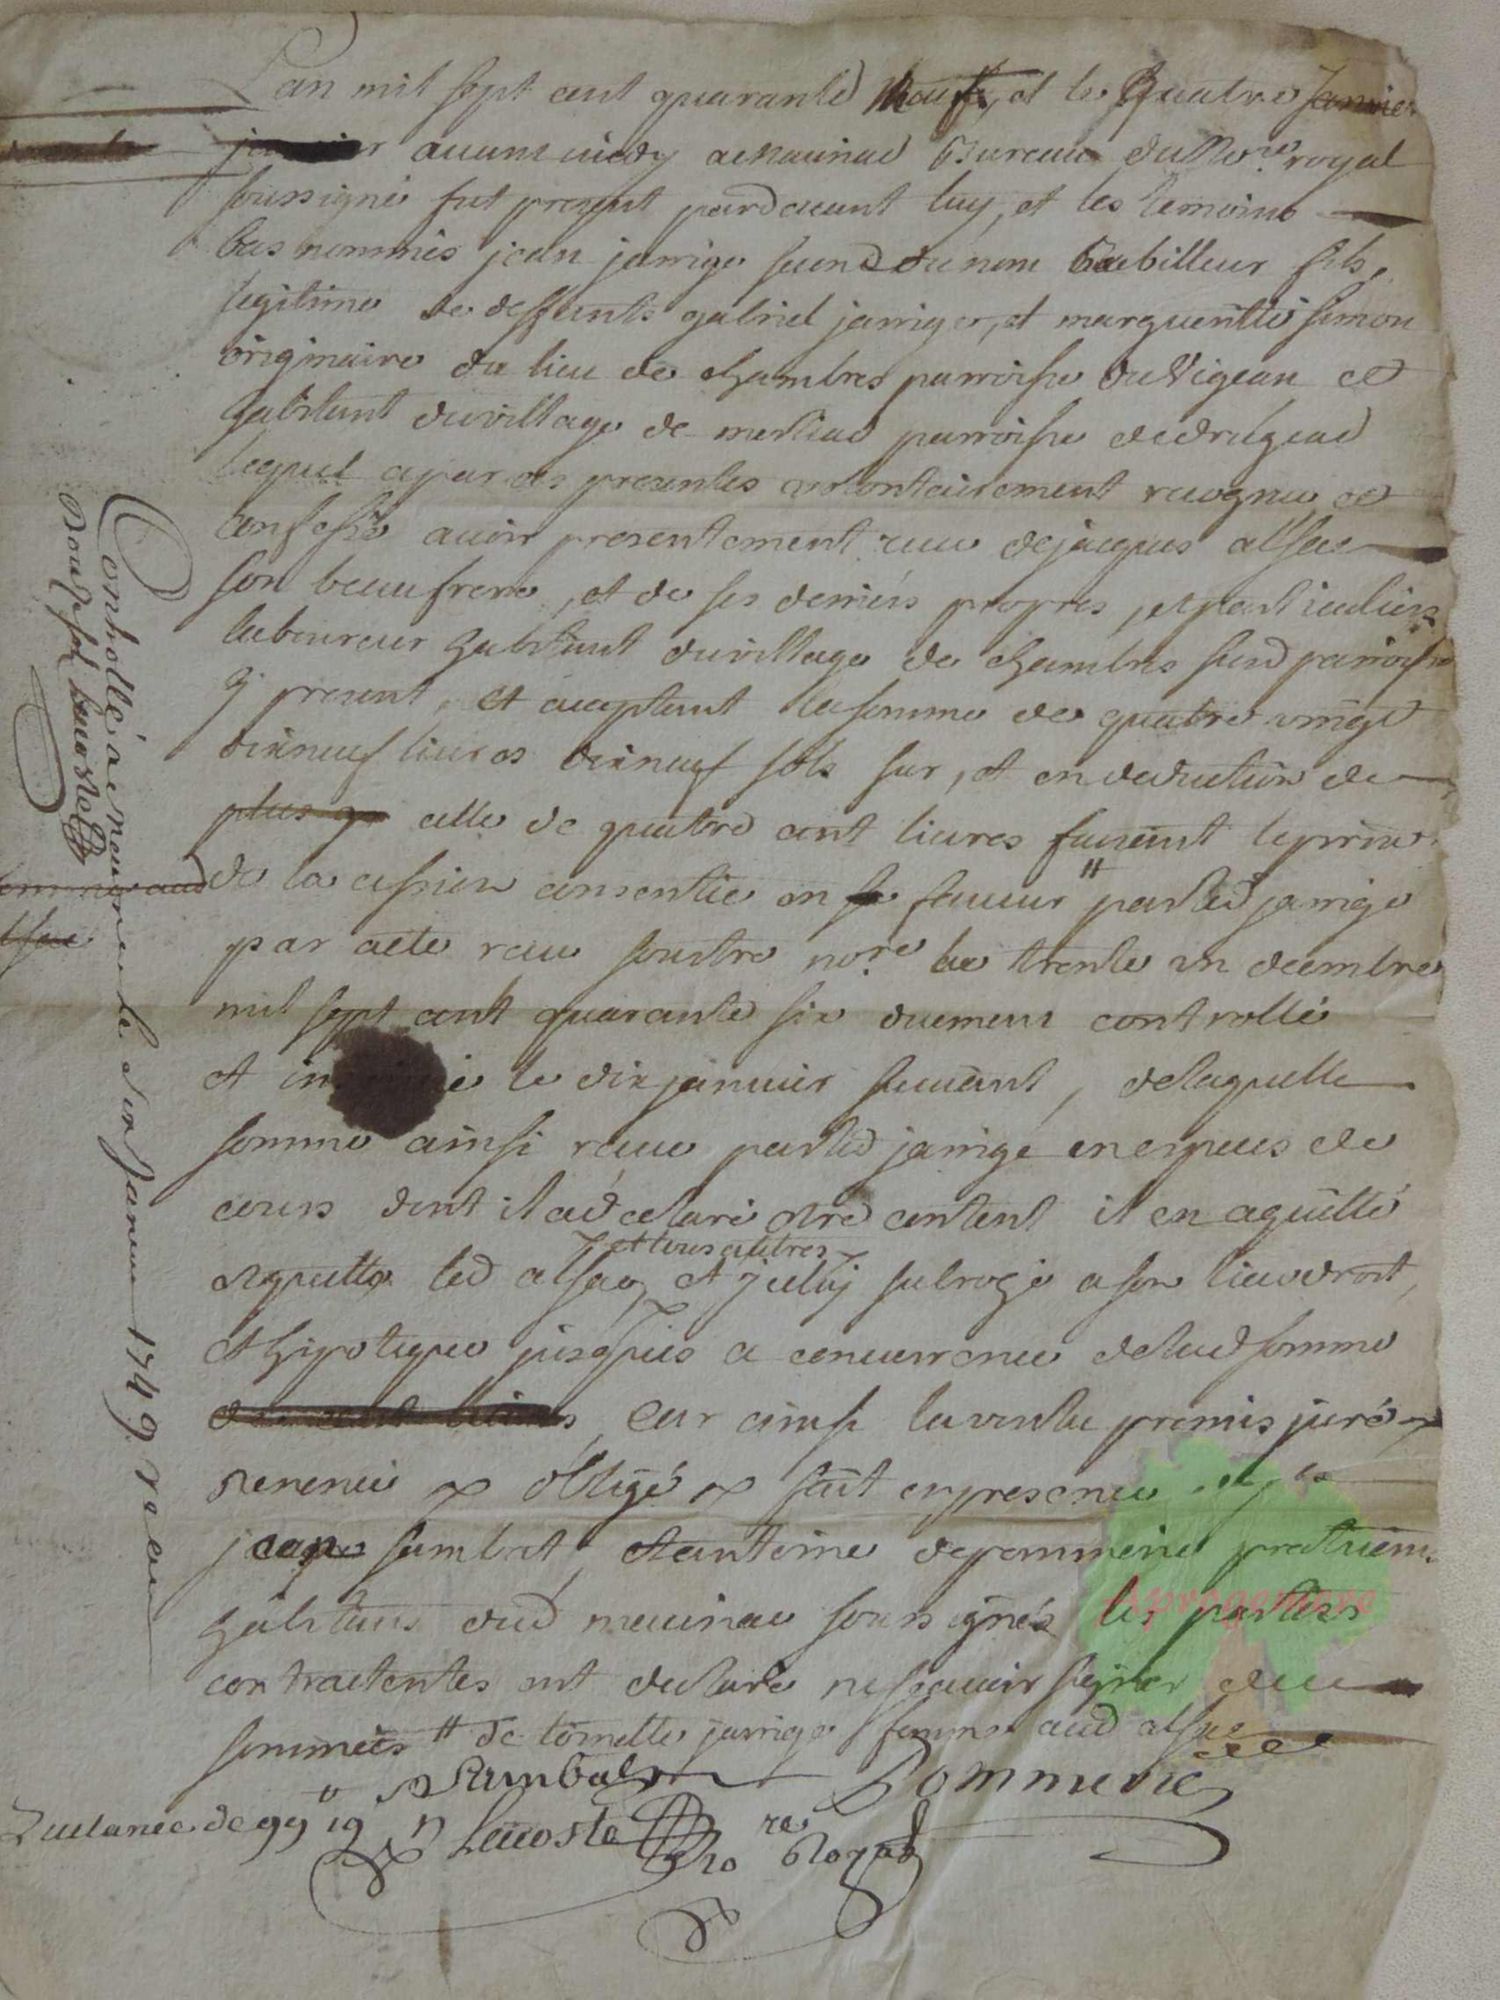 L'an mil sept cent quarante neuf, et le quatre janvier
avant midy a Mauriac Bureau du No.re royal
soussigné fut present pardevant luy, et les temoins
bas nommés jean jarrige second du nom habilleur fils
legitime de deffunts gabriel jarrige, et margueritte simon
originaire du lieu de chambres parroisse du Vigean et
habitant du village de parroisse de drugeac
lequel a par ces presentes volontairement recognu et
confessé avoir presentement receu de jacques alsac
son beaufrere, et de ses deniers propres, et particuliers
laboureur habitant du village de chambres susd parroisse
y present, et acceptant la somme de quatre vingt
dixneuf livres dixneuf sols sur, et en deduction de
plus g celle de quatre cent livres faisant le prix
de la cession consentie en sa faveur " par led jarrige
par acte receu nostre no.re le trente un decembre
mil sept cent quarante six duement controllé
et le dix janvier suivant, de laquelle
somme ainsi receu par led jarrige en especes de
cours dont il a declaré etre content il en a quitté
et quitte led alsac, et jceluj subrogé a son lieu droit,
et tous autres
et hipoteque jusques a concurrence de lad somme
Car ainsi promis juré
renoncé obligé fait en presence de
jean sambat, et antoine depommerie praticiens
habitans dud mauriac soussignés les parties
contractentes ont declaré ne sçavoir signer de ce
sommées " de toinette jarrige femme aud alsac
Sambat Pommerie
Quitance de 99 19 Lacoste no re Royal
Controllé a mauriac le six janvier 1749 receu
Douze sols Lacoste
aprogemere